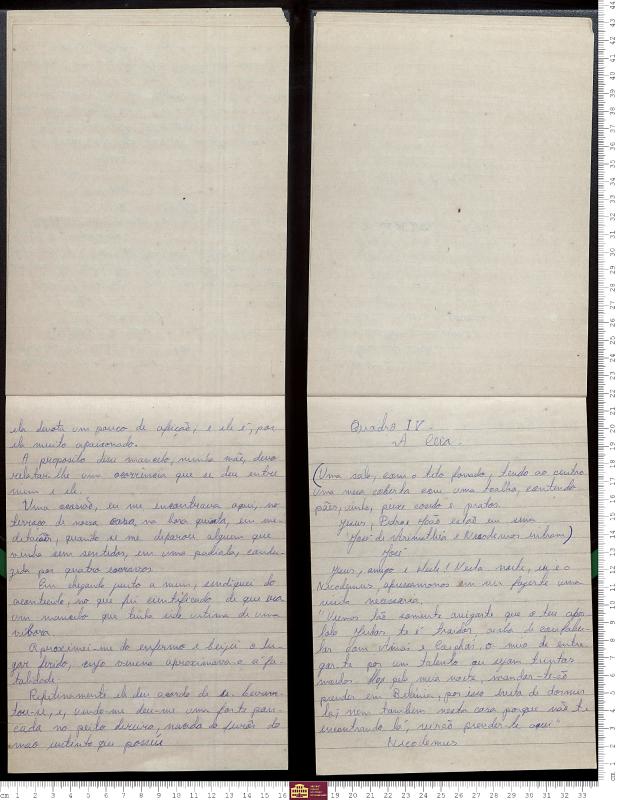 ela devota um pouco de afeição, e ele é, por
ela muito apaixonado.
A proposito desse mancebo, minha mãe, devo
relatar-lhe uma ocorrencia que se deu entre
mim e ele.
Uma ocasião, eu me encontrava aqui, no
terraço de nossa casa, na hora quieta, em me-
ditação, quando se me deparou alguem que
vinha sem sentidos, em uma padiola, condu-
zida por quatro escravos.
Em chegando junto a mim, indiquei do
acontecido, no que fui cientificado de que era
um mancebo que tinha sido vitima de uma
vibora.
Aproximei-me do enfermo e beijei o lu-
gar ferido, cujo veneno aproximava-o a fa-
talidade.
Repentinamente ele deu acordo de si. Levan-
tou-se, e, vendo-me deu-me uma forte pan-
cada no peito direito, nascida do furor do
mao intinto que possui
Quadro IV.
A Ceia.
(Uma sala, com o teto forrado, tendo ao centro
uma mesa coberta com uma toalha, contendo
pães, vinho, peixe cosido e pratos.
Jesus, Pedro e João estão em cena
José de Harimathéa e Nicodemus entram)
José
Jesus, amigo e Mestre! Nesta noite, eu e o
Nicodemus, apressamonos em vir fazerte uma
visita necessaria.
"Viemos tão somente avizarte que o teu apos-
tolo Judas, te é traidor, acaba de confabu-
lar com Annás e Caiphás, o meio de entre-
gar-te por um talento ou sejam trintas
moedas. Hoje pela meia noite, mandar-te-ão
prender em Betania, por isso evita de dormir
lá, nem tambem nesta casa, porque não te
encontrando lá, virão prender-te aqui"
Nicodemus